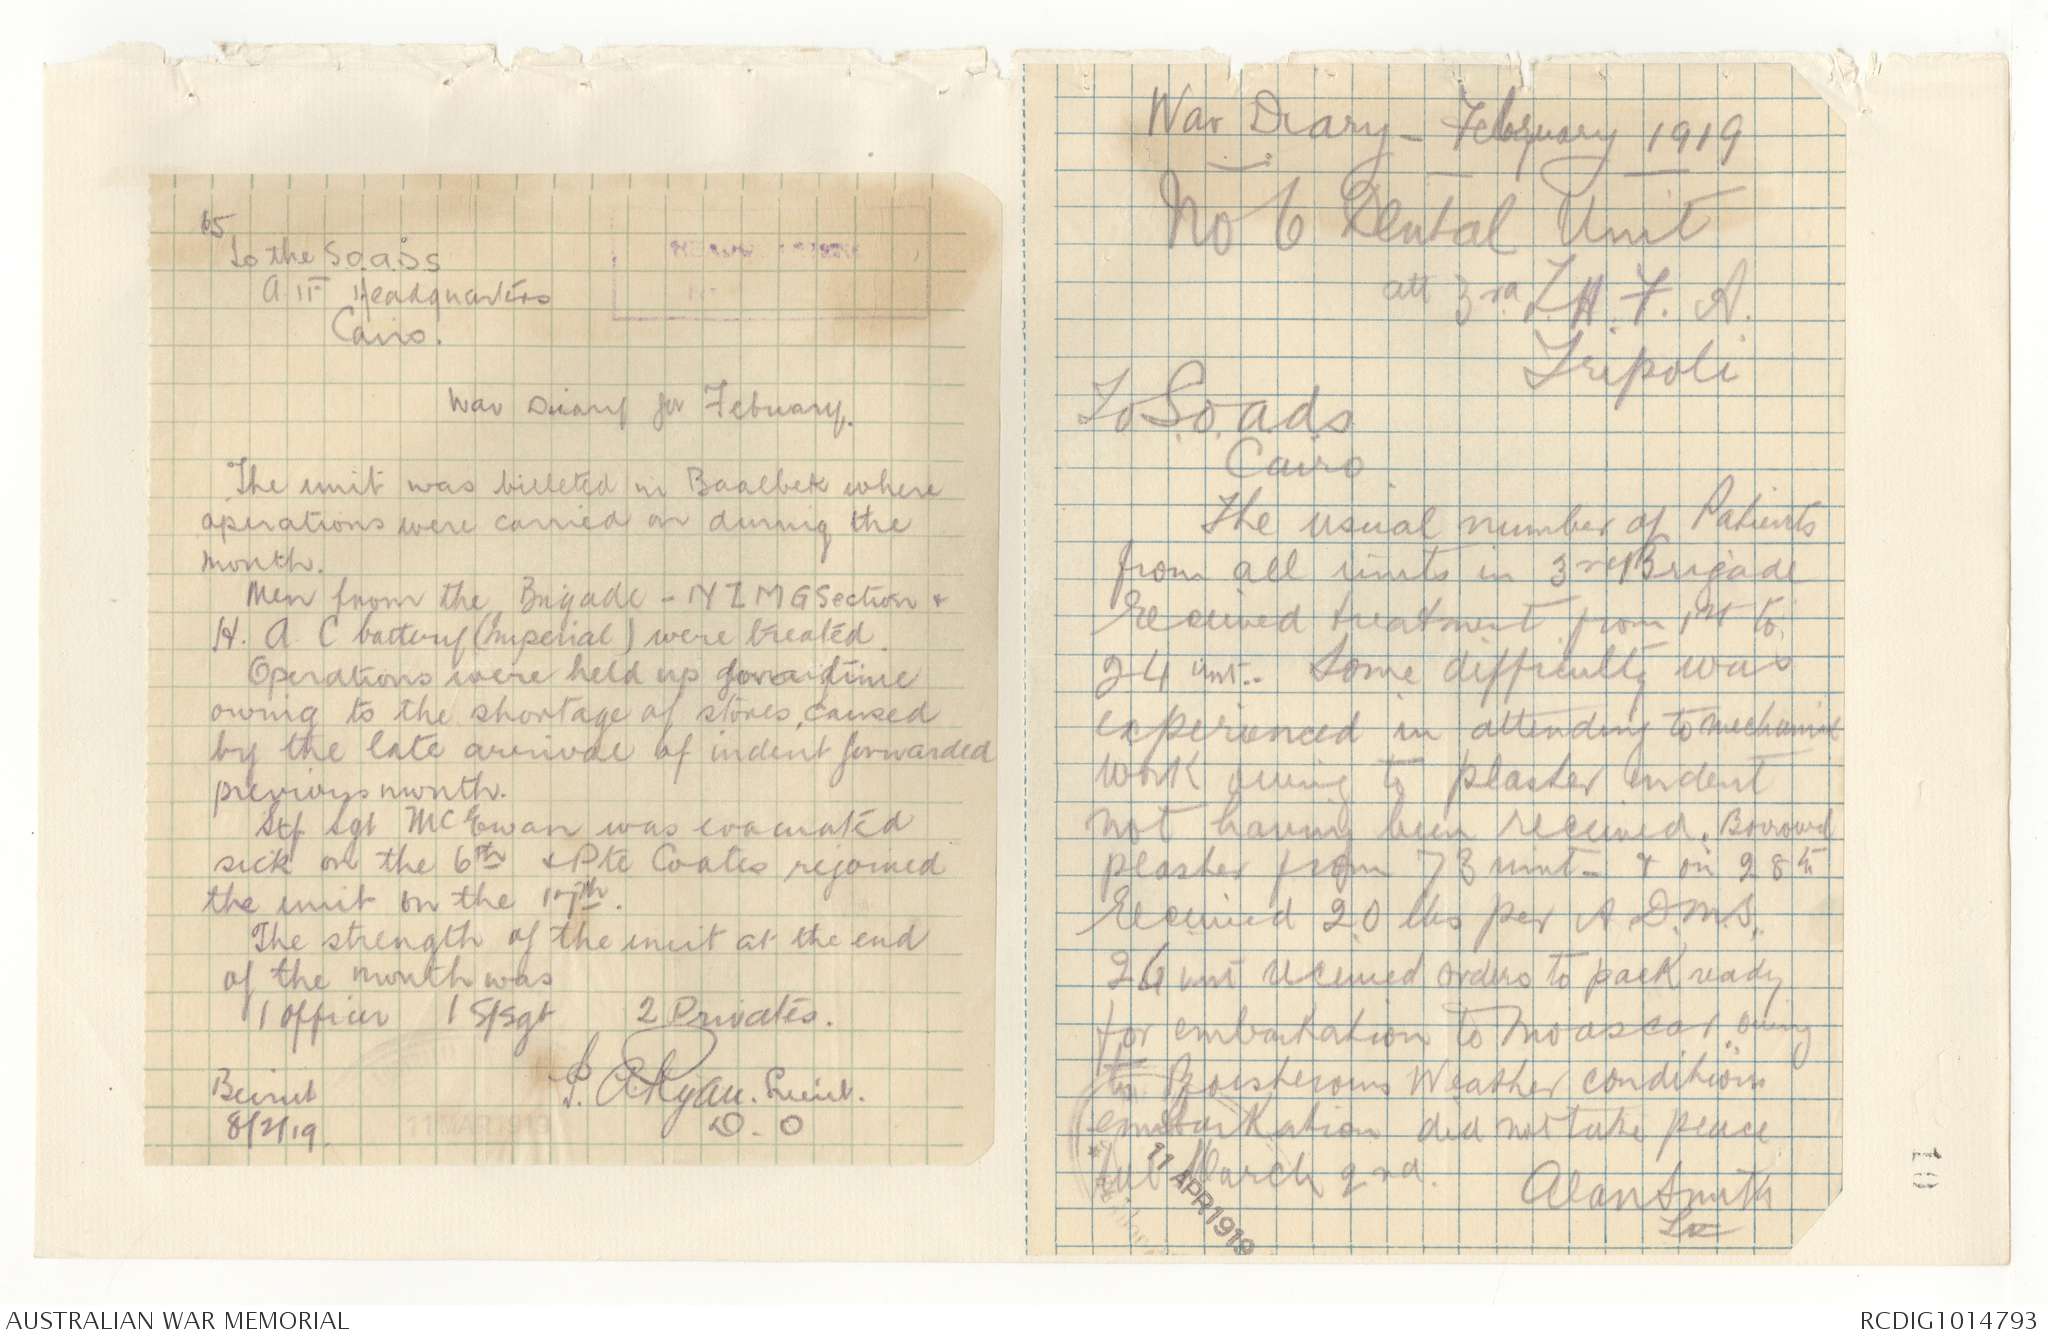 65
To the S.O.A.D.S
A.I.F Headquarters
Cairo.
War Diary for February.
The unit was billeted in Baalbek where
operations were carried on during the
month.
Men from the Brigade - N Z M G Section &
H. A. C battery (Imperial) were treated.
Operations were held up for a time
owing to the shortage of stores, caused
by the late arrival of indent forwarded
previous month.
Stf Sgt McEwan was evacuated
sick on the 6th & Pte Coates rejoined
the unit on the 17th.
The strength of the unit at the end
of the month was
1 Officer 1 S/Sgt 2 Privates.
A Ryan. Lieut.
D. O
Beirut
8/2/19.
11 MAR 1919
War Diary - February 1919
No 6 Dental Unit
att 3rd L. H. F. A.
Tripoli
To S.O.A.D.S
Cairo
The usual number of Patients
from all units in 3rd Brigade
Received treatment from 1st to
24 inst.. Some difficulty was
experienced in attending to mechanical
work owing to plaster indent
not having been received. Borrowed
plaster from 73 unit - & on 28th
Received 20 lbs per A.D.M.S.
26 inst received orders to pack ready
for embarkation to Moascar, owing
to Boisterous Weather conditions
embarkation did not take place
till March 2nd.
Alan Smith
Lt
11 APR 1919
101
AUSTRALIAN WAR MEMORIAL
RCDIG1014793